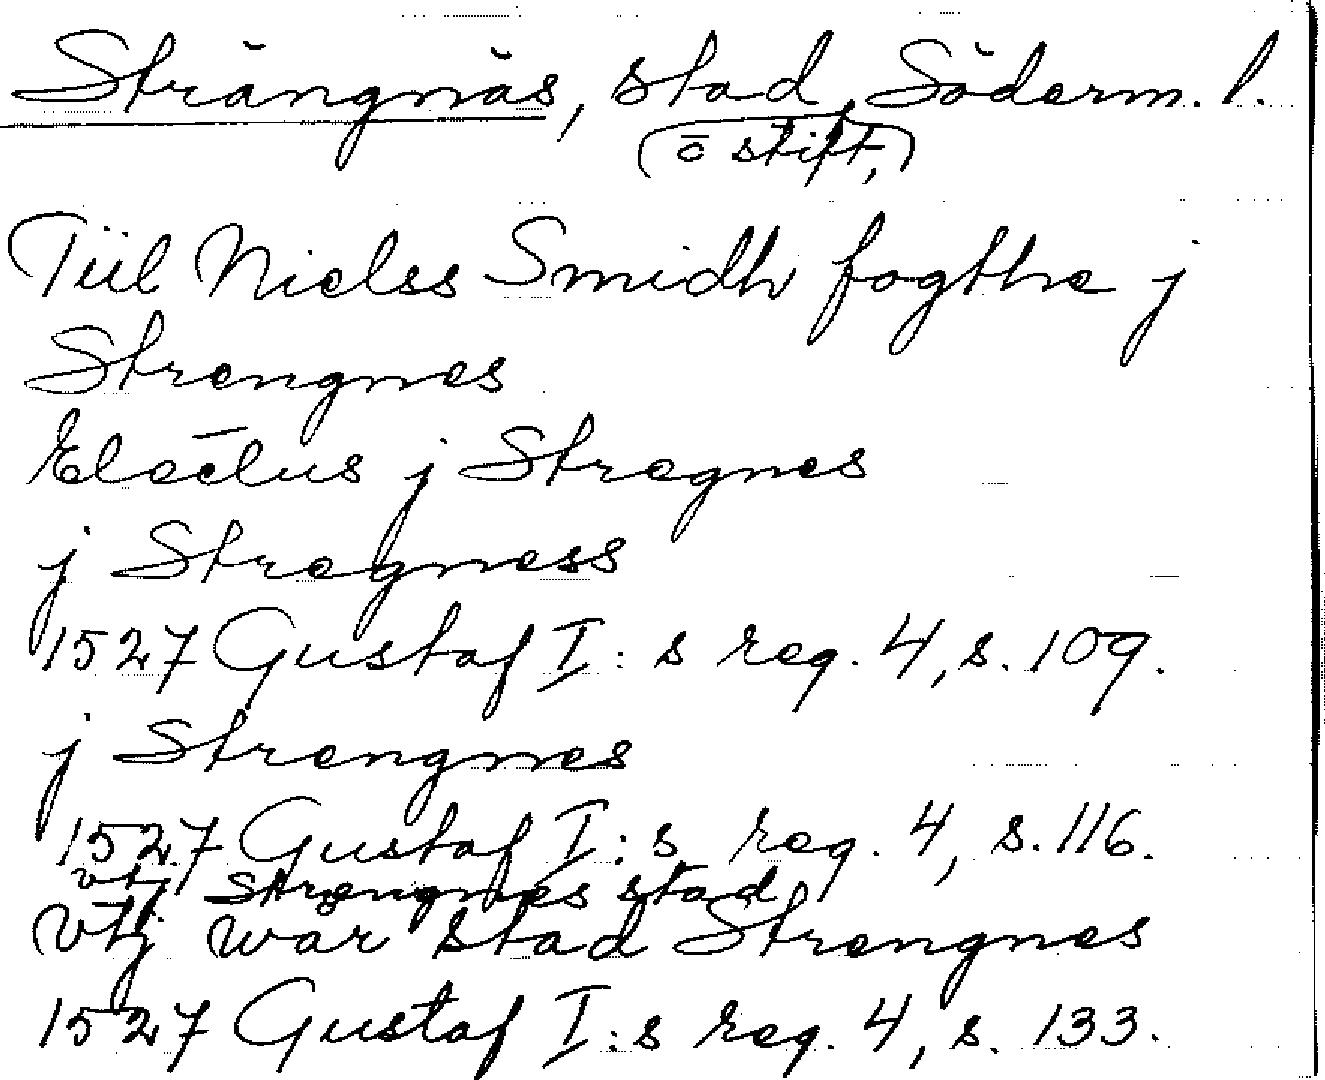 Strängnäs, stad, Söderm. l.
(o stift,)
Tiil Nielss Smidh fogthe j
Strengnes
Electus j Stregnes
j Stregness
1527 Gustaf I:s reg. 4, s. 109.
j Strengnes
1527 Gustaf I:s reg. 4, s. 116.
vtj Strengnes stad
Vtj wår stad Strengnes
1527 Gustaf I:s reg. 4, s. 133.